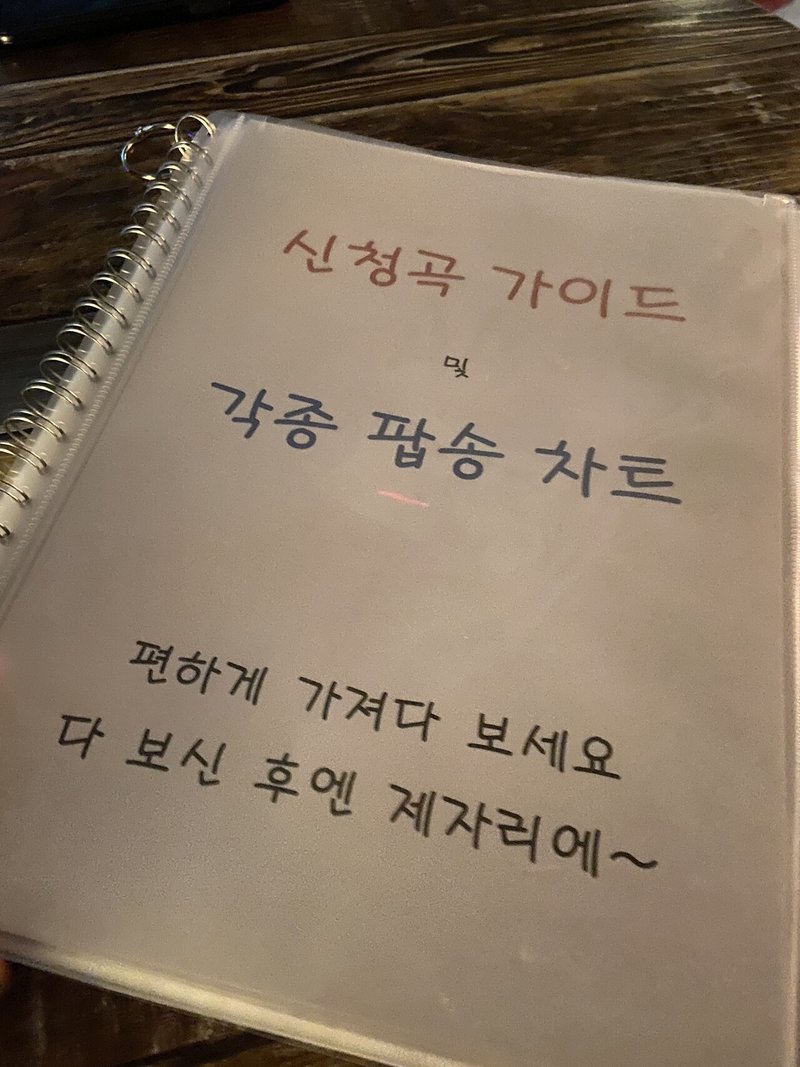 신청곡 가이드
및
각종 팝송 차트
편하게 가져다 보세요
다 보신 후엔 제자리에~